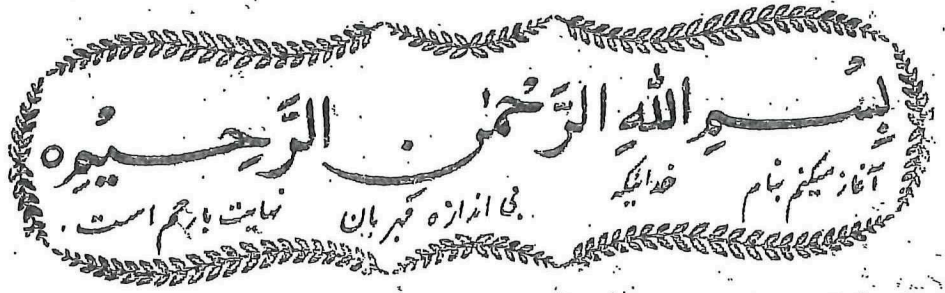 بِسْمِ اللهِ الرَّحْمٰنِ الرَّحِيْمِ ه
آغاز میکنم بنام خدائیکه بی اندازه مهربان نهایت بارحم است.